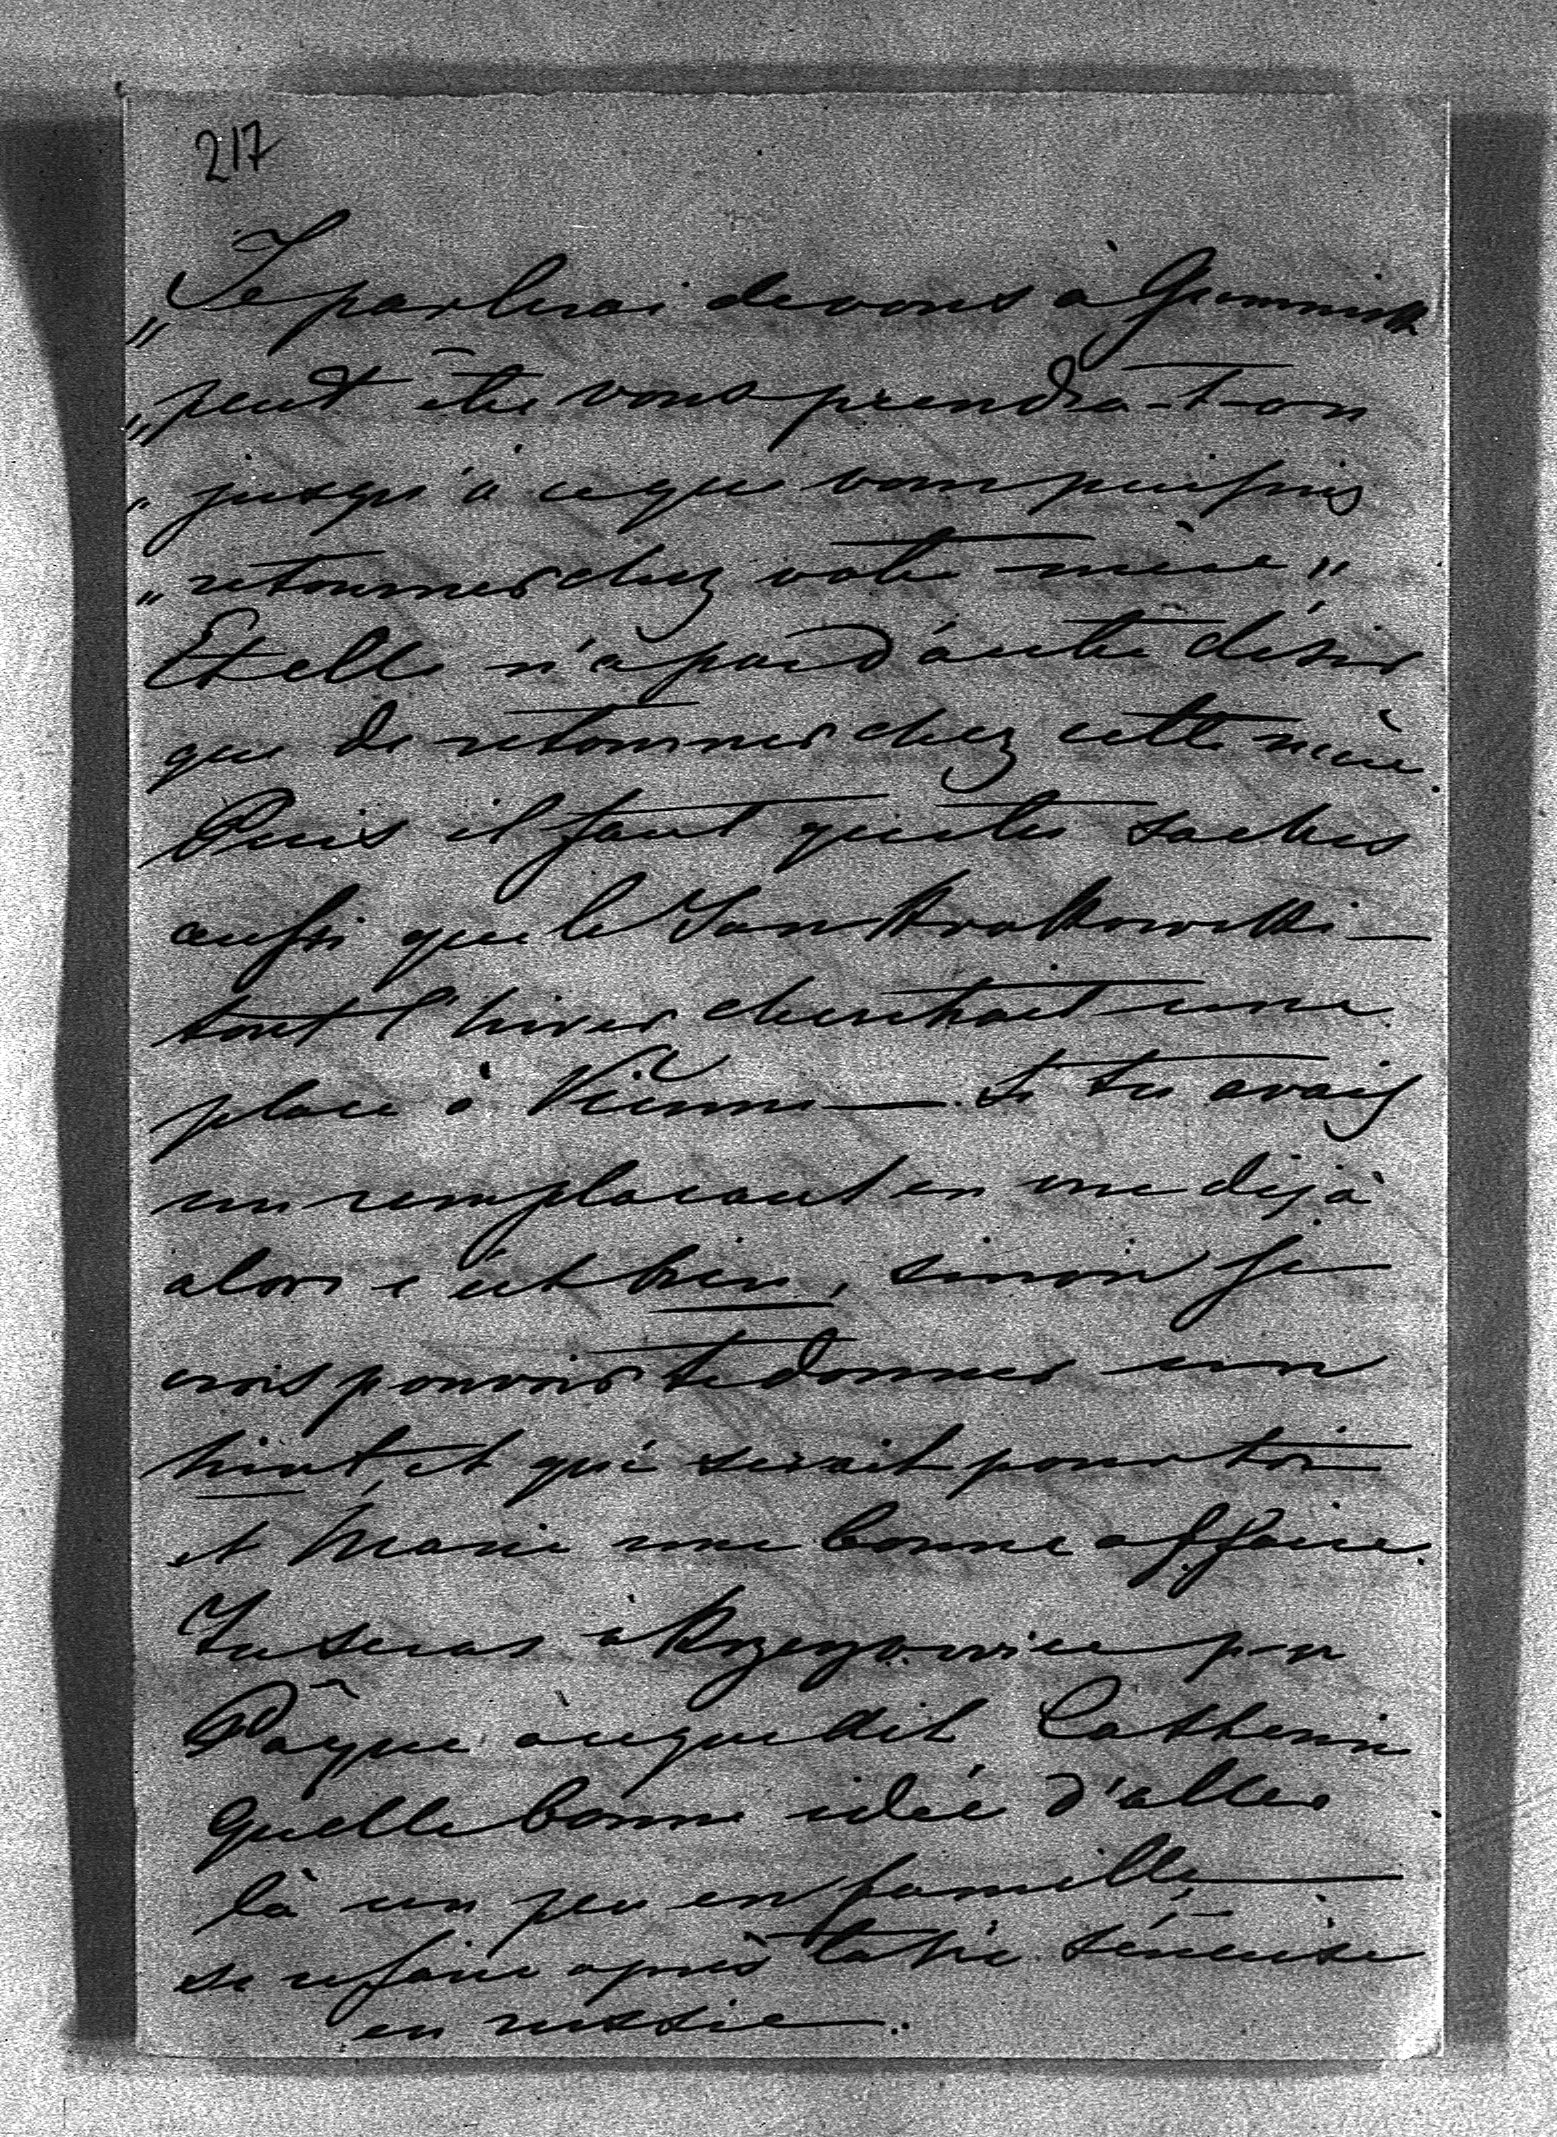 217
„Je parlerai de vous à
„peut être vous prendra-t-on
„jusqu'à ce que vous puissiez
„retourner chez votre mère"
Et elle n'a pas d'autre désir
que de retourner chez cette mère.
Puis il faut que tu saches
aussi que le Jan Krakowski —
tout l'hiver cherchait une
place à Vienne — Si tu avais
un remplacant en vue déjà
alors c'est bien, sinon je
crois pouvoir te donner un
hint, et qui serait pour toi
et Marie une bonne affaire.
Tu seras à pour
Pâque à ce que dit Catherine
Quelle bonne idée d'aller
là un peu en famille —
se refaire après ta vie sérieuse
en russie.